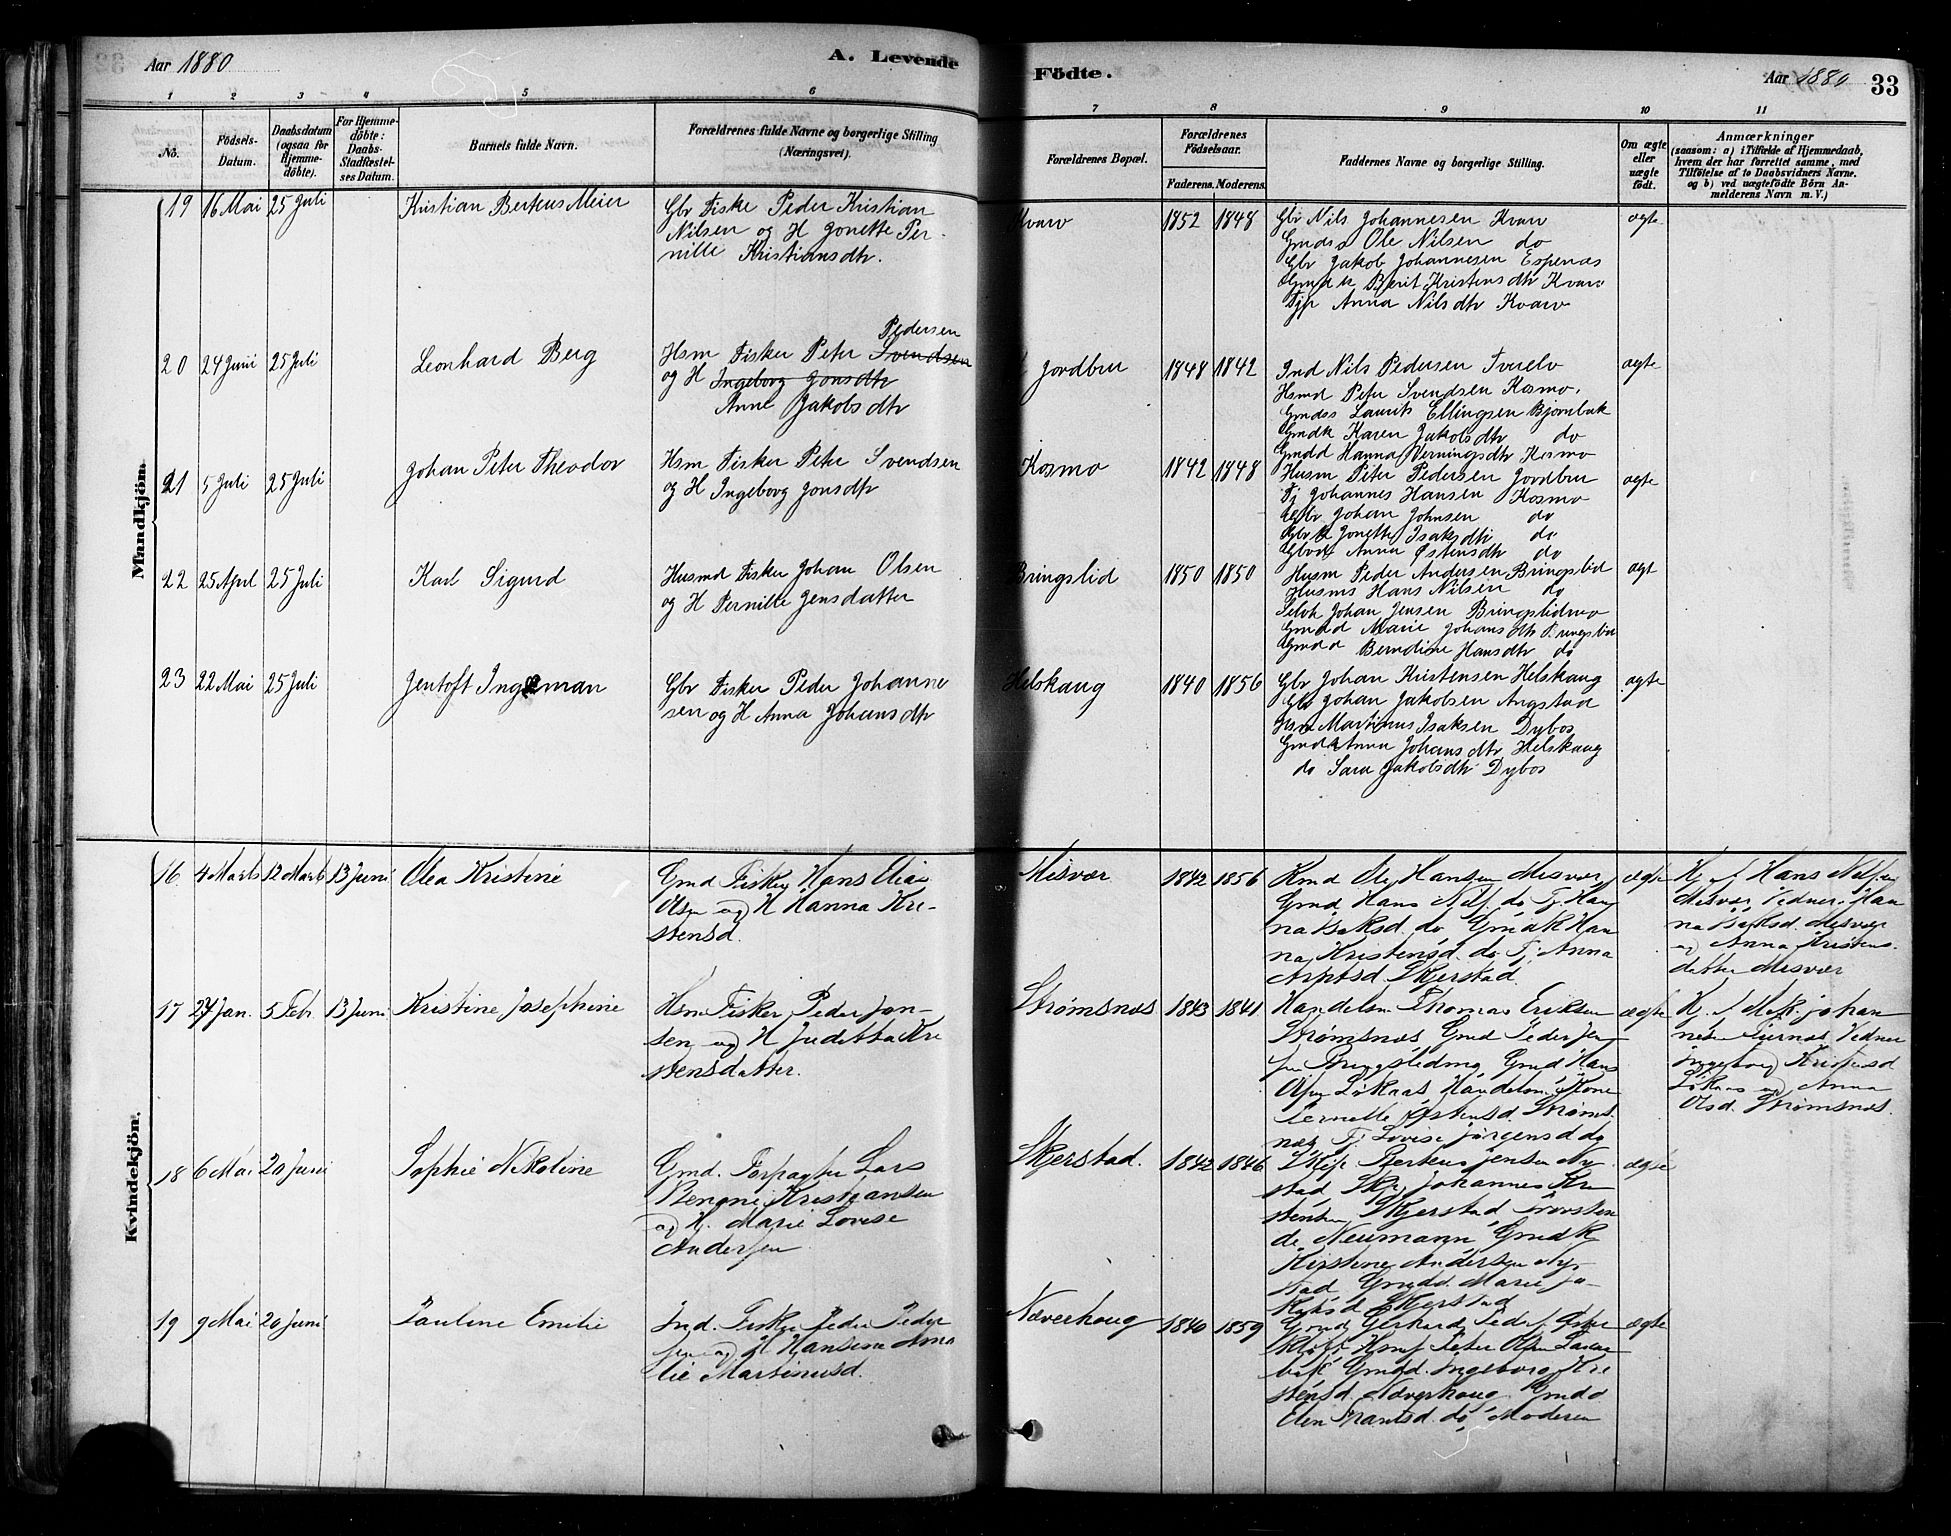 Aar 1880
A. Levende
Fødte.
Aar 1880
33
1 2 3 4 5 6 7 8 9 10 11
No.
Födsels-
Datum.
Daabsdatum
(ogsaa for
Hjemme-
döbte).
For Hjemme-
döbte:
Daabs-
Stadfæstel-
ses Datum.
Barnets fulde Navn.
Forældrenes fulde Navne og borgerlige Stilling
(Næringsvei).
Forældrenes Bopæl.
Forældrenes
Födselsaar.
Faderens. Moderens.
Faddernes Navne og borgerlige Stilling.
Om ægte
eller
uægte
født.
Anmærkninger
(saasom: a) i Tilfælde af Hjemmedaab,
hvem der har forrettet samme, med
Tilföielse af to Daabsvidners Navne.
og b) ved uægtefödte Börn An-
melderens Navn m. V.)
Mandkjön.
19 16 Mai 25 Juli
Kristian Berteus Meier
Gbr Fiske Peder Kristian
Nilsen og H Jonette Per-
nille Kristiansdtr.
Kvarv
1852 1848
Gbr Nils Johannesen Kvarv
Gmds Ole Nilsen do
Gbr Jakob Johannesen Espenæs
Gmdk Berit Kristensdtr Kvarv
Tjp Anna Nilsdtr Kvarv
ægte
20 24 Juni 25 Juli
Leonhard Berg
Pedersen
Hsm Fisker Peter Svendsen
og H Ingeborg Jonsdtr
Anne Jakobsdtr
Jordbru
1848 1842
Ind Nils Pedersen Tverelv
Hsmd Peter Svendsen Kosmo.
Gmdss Laurits Ellingsen Bjørnbak
Gmdk Karen Jakobsdtr do
Gmdd Hanna Verningsdtr Kosmo
ægte
21 5 Juli 25 Juli
Johan Peter Theodor
Hsm Fisker Peter Svendsen
og H Ingeborg Jonsdtr
Kosmo
1842 1848
Husm Peter Pedersen Jordbru
Tj Johannes Hansen Kosmo
Gbr Johan Johnsen do
Gbrk Jonette Isaksdtr do
Anna Østensdtr do
ægte
22 25 April 25 Juli
Karl Sigurd
Husmd Fisker Johan Olsen
og H Pernille Jensdatter
Bringslid
1850 1850
Husm Peder Andersen Bringslid
Husms Hans Nilsen do
Selvh Johan Jensen Bringslidmo
Gmdd Marie Johansdtr Bringslid
Gmdd Berndine Hansdtr do
ægt
23 22 Mai 25 Juli
Jentoft Ingeman
Gbr Fisker Peder Johanne
sen og H Anna Johansdtr
Helskaug
1840 1856
Gbr Johan Kristensen Helskaug
Gbr Johan Jakobsen Angstad
Hsm Martinus Isaksen Dybos
Gmdk Anna Johansdtr Helskaug
do Sara Jakobsdtr Dybos
ægte
Kvindekjön.
16 4 Marts 12 Marts 13 Juni
Olea Kristine
Gmd Fisker Hans Elias
Olsen og H Hanna Kri-
stensd.
Misvær
1842 1856
Kmd Ole Hansen Misvær
Gmd Hans Nils. do Tj. Han
na Isaksd. do Gmdk Han
na Kristensd. do Tj. Anna
Skjerstad
ægte
Hj. af Hans Nilsen
Misvær, Vidner: Han
na Isaksd. Misvær
og Anna Kristens-
datter Misvær
17 27 Jan. 5 Febr. 13 Juni
Kristine Josephine
Hsm Fisker Peder Jon-
sen og H Juditta Kri
stensdatter.
Strømsnes
1843 1841
Handelsm Thomas Eriksen
Strømsnes Gmd Peder Jen
sen Bringslidmo Gmd Hans
Olsen Løkaas, Handelsm. Kone
Pernelle Østensd. Strøms
næs Tj. Lovise Jørgensd do
ægte
Hj. af Johan
nesen Vidner
Ingeborg Kristensd
Løkaas og Anna
Olsd. Strømsnes.
18 6 Mai 20 Juni
Sophie Nikoline
Gmd. Forpagter Lars
Benoni Kristiansen
og H. Marie Lovise
Andersen
Skjerstad.
1842 1846
Berteus Jensen Ny-
stad Johannes Kri
stensen Skjerstad,
Neumann Gmdk
Kirstine Andersen Ny-
stad Gmdd. Marie Ja-
kobsd Skjerstad
ægte
19 9 Mai 20 Juni
Pauline Emilie
Ind. Fisker Peder Peder
sen og H Hansine Ama
lie Martinusd.
Næverhaug
1840 1859
Gmd Gerhard Peders.
Peter Olsen
Gmdd. Ingeborg Kri
stensd. Næverhaug Gmdd
Elen Frantsd. do, Moderen
ægte